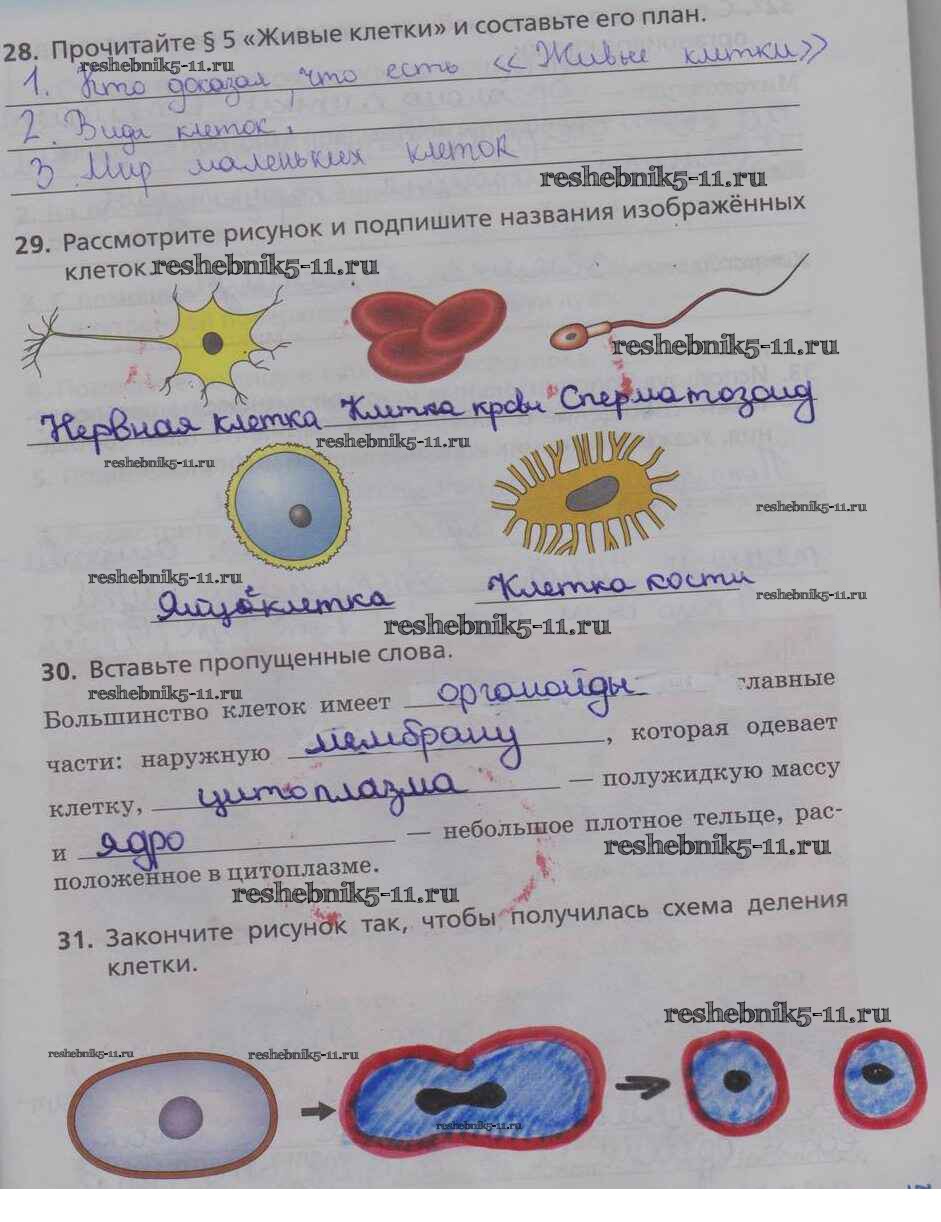 28. Прочитайте § 5 «Живые клетки» и составьте его план.
reshebnik5-11.ru
1. Кто доказал, что есть «Живые клетки»
2. Виды клеток.
3. Мир маленьких клеток
reshebnik5-11.ru
29. Рассмотрите рисунок и подпишите названия изображённых
клеток
reshebnik5-11.ru
reshebnik5-11.ru
Нервная клетка Клетка крови Сперматозоид
reshebnik5-11.ru
reshebnik5-11.ru
reshebnik5-11.ru
reshebnik5-11.ru
Яйцеклетка Клетка кости
reshebnik5-11.ru
reshebnik5-11.ru
30. Вставьте пропущенные слова.
reshebnik5-11.ru
Большинство клеток имеет органойды главные
части: наружную мембрану, которая одевает
клетку, цитоплазма — полужидкую массу
и ядро — небольшое плотное тельце, рас-
reshebnik5-11.ru
положенное в цитоплазме.
reshebnik5-11.ru
31. Закончите рисунок так, чтобы получилась схема деления
клетки.
reshebnik5-11.ru
reshebnik5-11.ru reshebnik5-11.ru
reshebnik5-11.ru